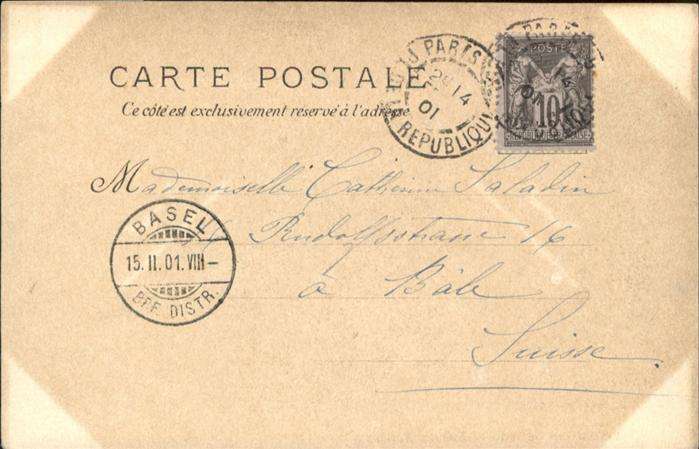 CARTE POSTALE
Ce côté est exclusivement reservé à l'adresse
PARIS
14
01
REPUBLIQUE
POSTE
10
Mademoiselle Catherine Saladin
Rudolfsstrasse 16
à Bâle
Suisse
BASEL
15.II.01.VIII–
BRF. DISTR.